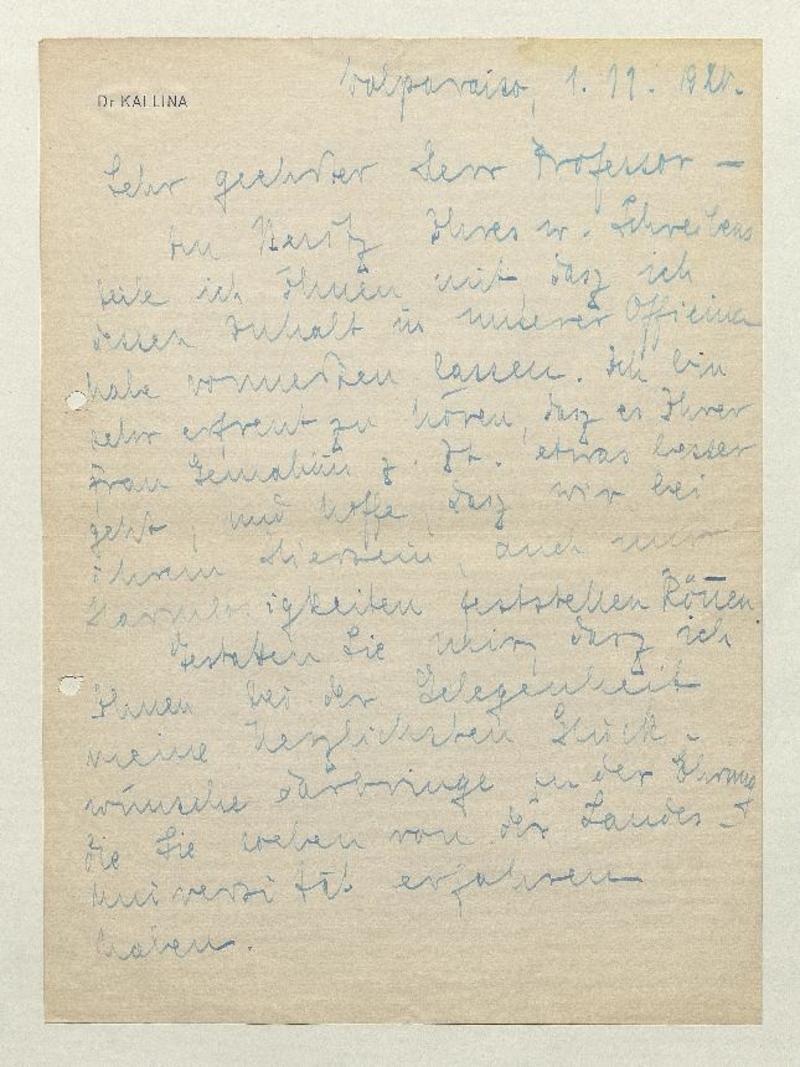 Dr KALLINA
Valparaiso, 1. 11. 192
Sehr geehrter Herr Professor –
Im Besitz Ihres w. Schreibens
teile ich Ihnen mit, dasz ich
dessen Inhalt in unserer Officina
habe vormerken lassen. Ich bin
sehr erfreut zu hören, dasz es Ihrer
Frau Gemahlin z. Zt. etwas besser
geht, und hoffe, dasz wir bei
ihrem Hiersein, auch nur
Harmlosigkeiten feststellen können.
Gestatten Sie mir, dasz ich
Ihnen bei der Gelegenheit
meine herzlichsten Glück-
wünsche darbringe zu der Ehrung
die Sie soeben von der Landes-
universität erfahren
haben.